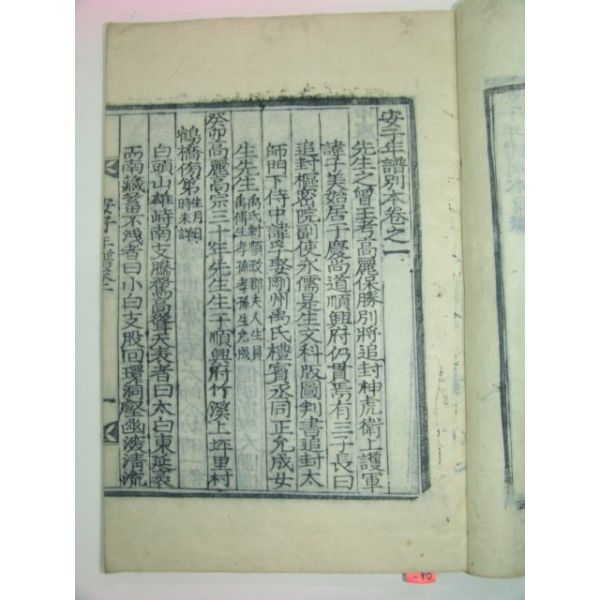 安子年譜別本卷之一
先生之曾王考高麗保勝別將追封神虎衛上護軍
諱子美始居于慶尚道順興府仍貫焉有三子長曰
追封樞密院副使永儒是生文科版圖判書追封太
師門下侍中諱孚娶剛州禹氏禮賓丞同正允成女
生先生禹氏封順政郡夫人生員禹儔生孝孫孝孫生允成
癸卯高麗高宗三十年先生生于順興府竹溪上坪里村
鶴橋傍第生月日時未詳
白頭山雄峙南支騰驚高聳天表者曰太白東延袤
而南藏蓄不洩者曰小白支股回環洞壑幽深清流
安子年譜卷一
一
-90